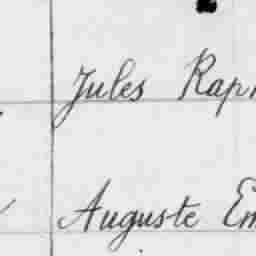 Jules Rap
Auguste Em